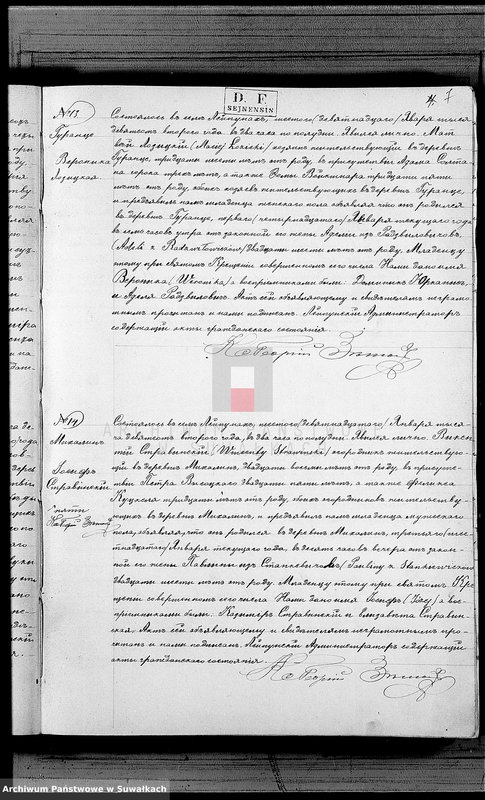 D. F.
SEJNENSIN
7
№13
Гуранце
Вероника
Лозицкая
Состоялось въ селѣ Лейпунахъ, шестого/девятнадцатаго/ Января тысяча
девятсотъ второго года, въ два часа по полудни. Явился лично, Мат
вѣй Лозицкій (Maciej Łozicki) хозяинъ жительствующій въ деревнѣ
Гуранце, тридцати шести лѣтъ отъ роду, въ присутствіи Адама
сорока трехъ лѣтъ, а также Войкшнара тридцати пяти
лѣтъ отъ роду, обоихъ хозяевъ жительствующихъ въ деревнѣ Гуранце,
и предъявилъ намъ младенца женскаго пола объявляя что онъ родился
въ деревнѣ Гуранце, перваго/четырнадцатаго/ Января текущаго года
въ семь часовъ утра отъ законной его жены Аделіи изъ Радзвиловичовъ,
/двадцати шести лѣтъ отъ роду. Младенцу
этому при святомъ Крещеніи совершенномъ его числа Нами дано имя
Вероника/ а воспріемниками были: Доминикъ
и Аделя Актъ сей объявляющему и свидѣтелямъ неграмот
нымъ прочитанъ и нами подписанъ. Лейпунскій Администраторъ
содержащій акты гражданскаго состоянія
№14
Михалинъ
Іосифъ
Стравинскій
Состоялось въ селѣ Лейпунахъ, шестого/девятнадцатаго/ Января тыся
ча девятсотъ второго года, въ два часа по полудни. Явился лично, Викен
тій Стравинскій /Wincenty Strawiński/ огородникъ жительствую
щій въ деревнѣ Михалинъ, двадцати восьми лѣтъ отъ роду, въ присутс
твіи Петра Высоцкаго двадцати пяти лѣтъ, а также Феликса
тридцати лѣтъ отъ роду, обоихъ огородниковъ жительству
ющихъ въ деревнѣ Михалинъ, и предъявилъ намъ младенца мужескаго
пола, объявляя, что онъ родился въ деревнѣ Михалинъ, третьяго/шест
надцатаго/ Января текущаго года, въ десять часовъ вечера отъ закон
ной его жены Павлины изъ Станкевичовъ/Pauliny z Stankiewiczow/
двадцати шести лѣтъ отъ роду. Младенцу этому при святомъ Кре
щеніи совершенномъ его числа Нами дано имя Іосифъ/ а вос
пріемниками были: Казимеръ Стравинскій и Елизавета Стравин
ская. Актъ сей объявляющему и свидѣтелямъ неграмотнымъ про
читанъ и нами подписанъ. Лейпунскій Администраторъ содержащій
акты гражданскаго состоянія
Archiwum Państwowe w Suwałkach